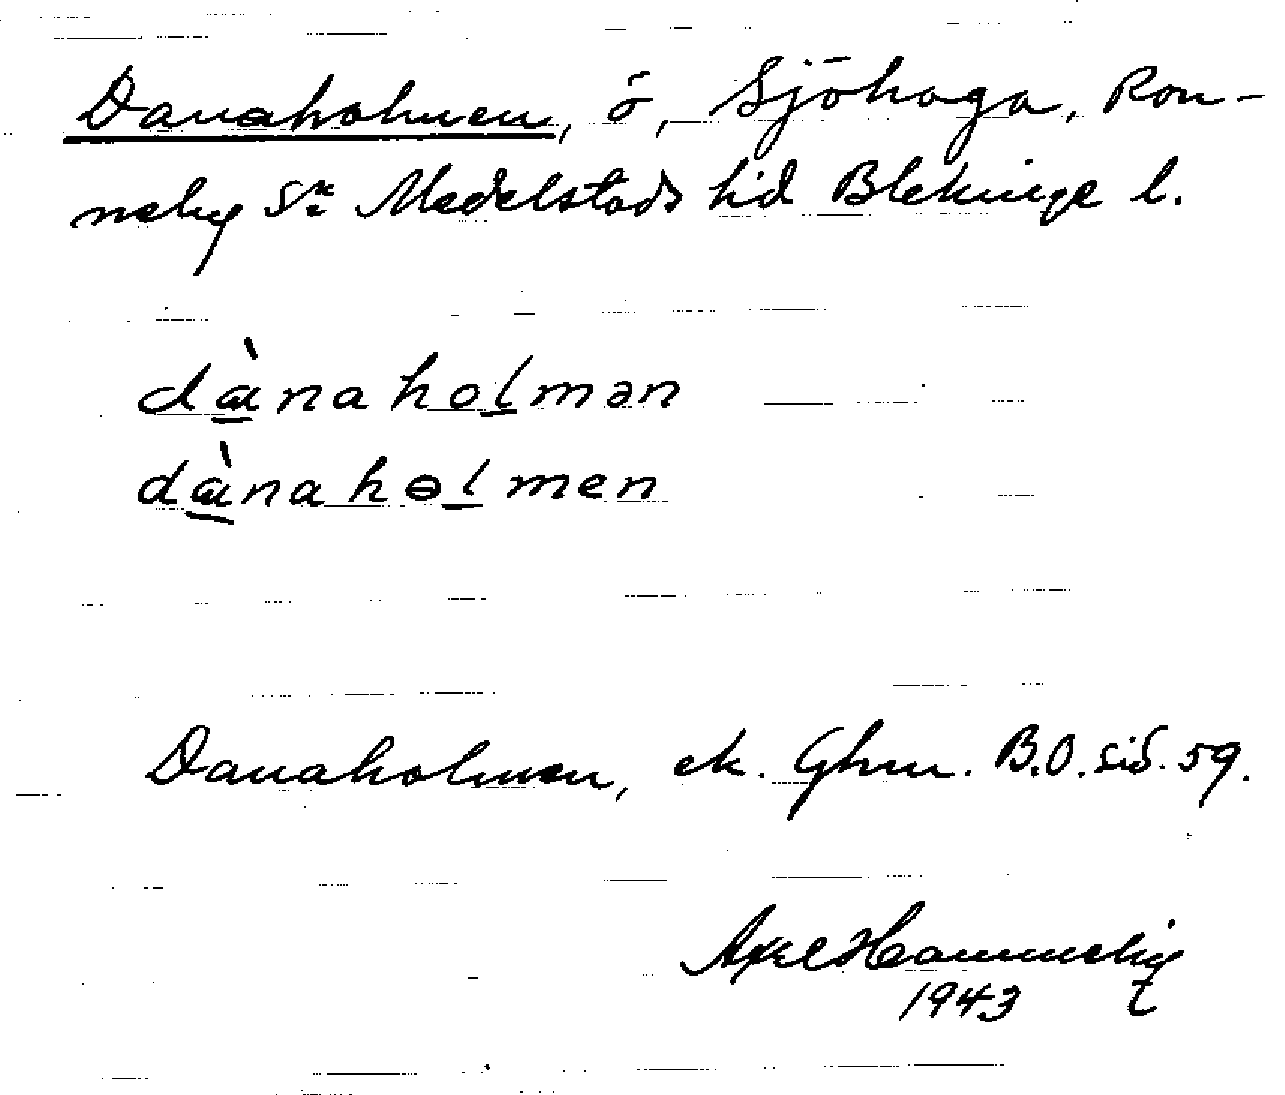 Danaholmen, ö, Sjöhaga, Ron-
neby Sn Medelstads hd Blekinge l.
dànaholmən
dànahɵlmen
Danaholmen, ek. Ghm. B.O. sid. 59.
Axel Hammeby
1943